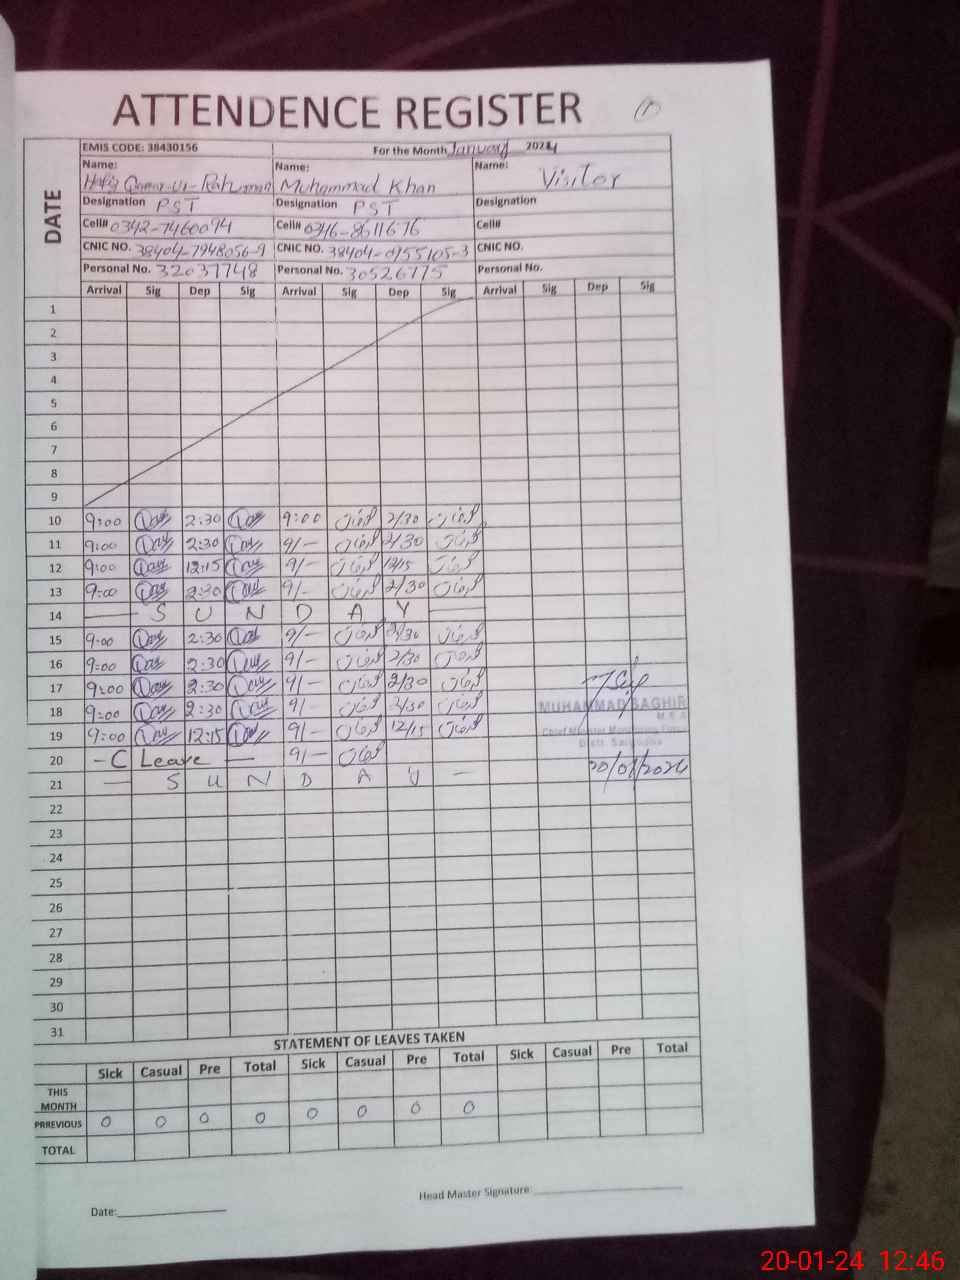 ATTENDENCE REGISTER
EMIS CODE: 38430156 For the Month January 2024
DATE
Name: Name: Name:
Hafiz Qamar-ul-Rahman Muhammad Khan Visitor
Designation PST Designation PST Designation
Cell# 0342-7460094 Cell# 0346-8611676 Cell#
CNIC NO. 38404-7948056-9 CNIC NO. 38404-0155105-3 CNIC NO.
Personal No. 32037748 Personal No. 30526775 Personal No.
Arrival Sig Dep Sig Arrival Sig Dep Sig Arrival Sig Dep Sig
1
2
3
4
5
6
7
8
9
10 9:00 2:30 9:00 2/30
11 9:00 2:30 9/- 2/30
12 9:00 12:15 9/- 12/15
13 9:00 2:30 9/- 2/30
14 — S U N D A Y —
15 9:00 2:30 9/- 2/30
16 9:00 2:30 9/- 2/30
17 9:00 2:30 9/- 2/30
18 9:00 2:30 9/- 2/30
MUHAMMAD SAGHIR
19 9:00 12:15 9/- 12/15
20 - C Leave — 9/-
20/01/2024
21 — S U N D A Y —
22
23
24
25
26
27
28
29
30
31
STATEMENT OF LEAVES TAKEN
Sick Casual Pre Total Sick Casual Pre Total Sick Casual Pre Total
THIS MONTH
PRREVIOUS 0 0 0 0 0 0 0 0
TOTAL
Head Master Signature:
Date:
20-01-24 12:46